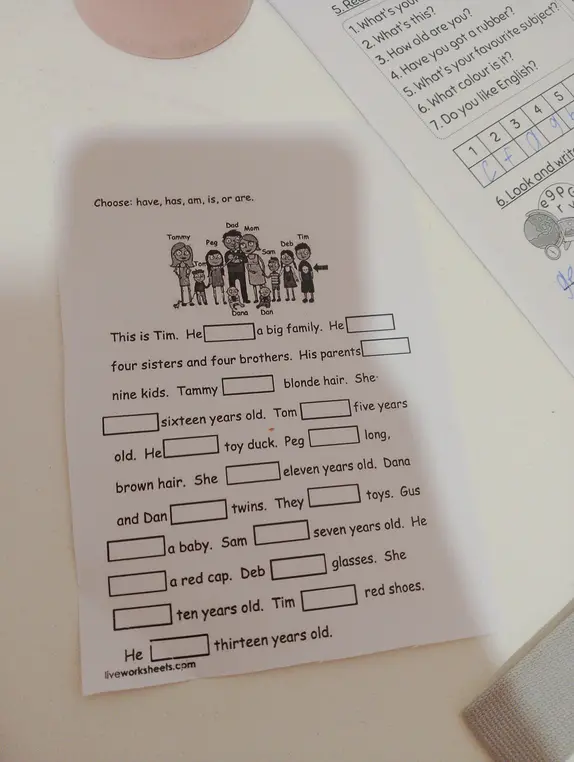 5. Rea
1. What's you
2. What's this?
3. How old are you?
4. Have you got a rubber?
5. What's your favourite subject?
6. What colour is it?
7. Do you like English?
1 2 3 4 5
6. Look and write
Choose: have, has, am, is, or are.
Tammy Tom Peg Dad Mom Sam Deb Tim
Dana Dan
This is Tim. He a big family. He
four sisters and four brothers. His parents
nine kids. Tammy blonde hair. She
sixteen years old. Tom five years
old. He toy duck. Peg long,
brown hair. She eleven years old. Dana
and Dan twins. They toys. Gus
a baby. Sam seven years old. He
a red cap. Deb glasses. She
ten years old. Tim red shoes.
He thirteen years old.
liveworksheets.com